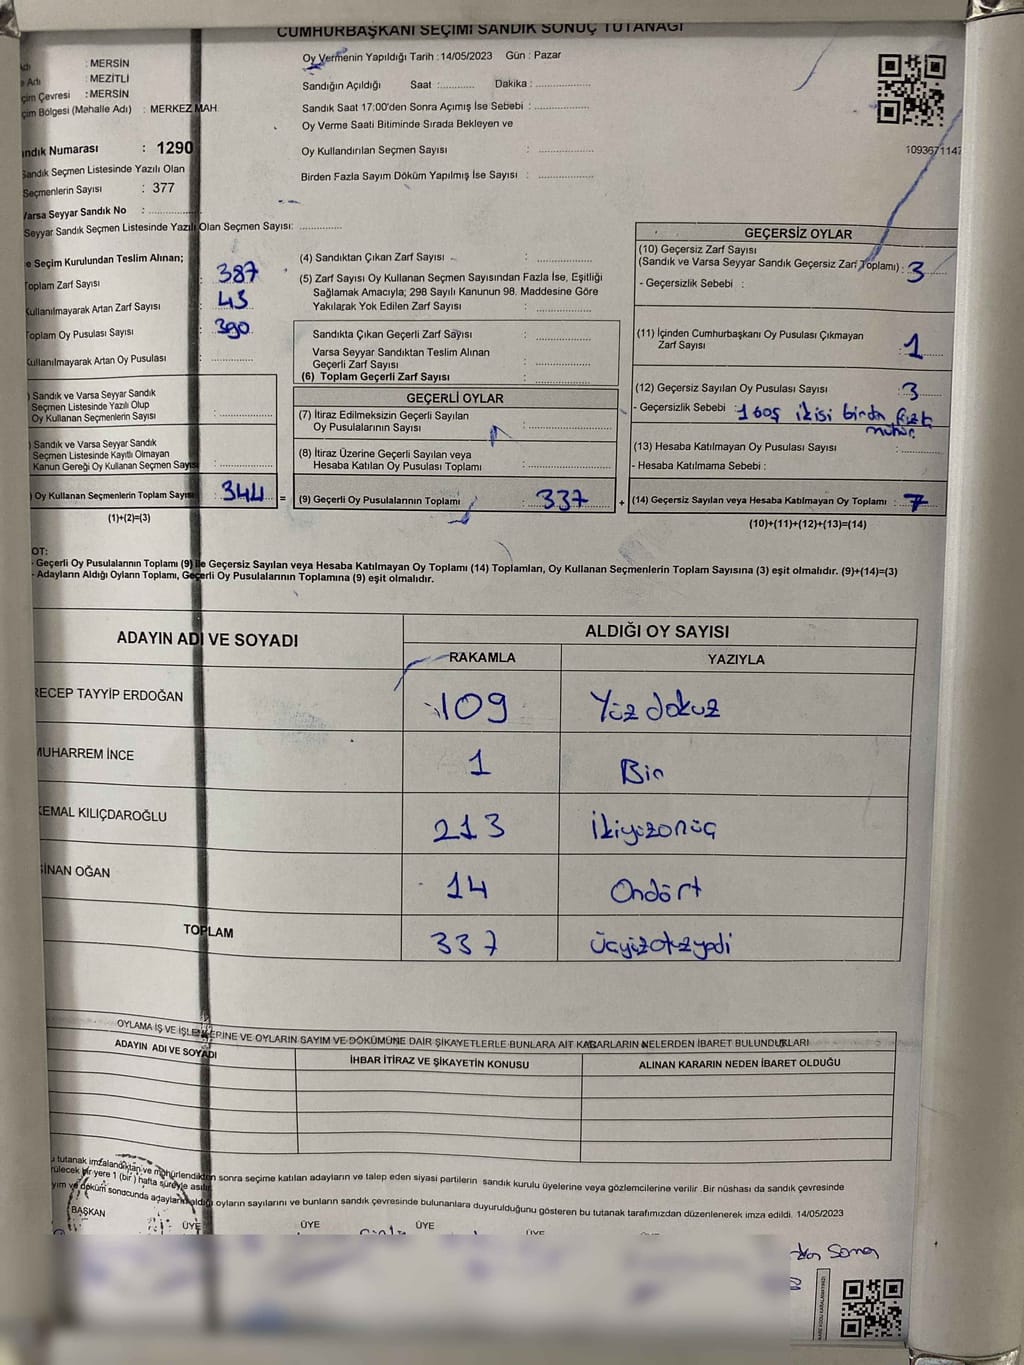 CUMHURBAŞKANI SEÇİMİ SANDIK SONUÇ TUTANAĞI
: MERSİN
Adı : MEZİTLİ
çim Çevresi : MERSİN
çim Bölgesi (Mahalle Adı) : MERKEZ MAH.
ndık Numarası : 1290
Sandık Seçmen Listesinde Yazılı Olan
Seçmenlerin Sayısı : 377
Varsa Seyyar Sandık No :
Seyyar Sandık Seçmen Listesinde Yazılı Olan Seçmen Sayısı:
Oy Vermenin Yapıldığı Tarih : 14/05/2023 Gün : Pazar
Sandığın Açıldığı Saat : Dakika :
Sandık Saat 17:00'den Sonra Açımış İse Sebebi :
Oy Verme Saati Bitiminde Sırada Bekleyen ve
Oy Kullandırılan Seçmen Sayısı :
Birden Fazla Sayım Döküm Yapılmış İse Sayısı :
e Seçim Kurulundan Teslim Alınan;
Toplam Zarf Sayısı : 387
Kullanılmayarak Artan Zarf Sayısı : 43
Toplam Oy Pusulası Sayısı : 390
Kullanılmayarak Artan Oy Pusulası :
) Sandık ve Varsa Seyyar Sandık
Seçmen Listesinde Yazılı Olup
Oy Kullanan Seçmenlerin Sayısı :
) Sandık ve Varsa Seyyar Sandık
Seçmen Listesinde Kayıtlı Olmayan
Kanun Gereği Oy Kullanan Seçmen Sayısı :
) Oy Kullanan Seçmenlerin Toplam Sayısı : 344 =
(1)+(2)=(3)
(4) Sandıktan Çıkan Zarf Sayısı :
(5) Zarf Sayısı Oy Kullanan Seçmen Sayısından Fazla İse, Eşitliği
Sağlamak Amacıyla; 298 Sayılı Kanunun 98. Maddesine Göre
Yakılarak Yok Edilen Zarf Sayısı :
Sandıkta Çıkan Geçerli Zarf Sayısı :
Varsa Seyyar Sandıktan Teslim Alınan
Geçerli Zarf Sayısı :
(6) Toplam Geçerli Zarf Sayısı :
GEÇERLİ OYLAR
(7) İtiraz Edilmeksizin Geçerli Sayılan
Oy Pusulalarının Sayısı :
(8) İtiraz Üzerine Geçerli Sayılan veya
Hesaba Katılan Oy Pusulası Toplamı :
(9) Geçerli Oy Pusulalarının Toplamı : 337 +
1093671147
GEÇERSİZ OYLAR
(10) Geçersiz Zarf Sayısı
(Sandık ve Varsa Seyyar Sandık Geçersiz Zarf Toplamı) : 3
- Geçersizlik Sebebi :
(11) İçinden Cumhurbaşkanı Oy Pusulası Çıkmayan
Zarf Sayısı : 1
(12) Geçersiz Sayılan Oy Pusulası Sayısı : 3
- Geçersizlik Sebebi : 1 boş ikisi birden fazla
mühür
(13) Hesaba Katılmayan Oy Pusulası Sayısı :
- Hesaba Katılmama Sebebi :
(14) Geçersiz Sayılan veya Hesaba Katılmayan Oy Toplamı : 7
(10)+(11)+(12)+(13)=(14)
OT:
- Geçerli Oy Pusulalarının Toplamı (9) ile Geçersiz Sayılan veya Hesaba Katılmayan Oy Toplamı (14) Toplamları, Oy Kullanan Seçmenlerin Toplam Sayısına (3) eşit olmalıdır. (9)+(14)=(3)
- Adayların Aldığı Oyların Toplamı, Geçerli Oy Pusulalarının Toplamına (9) eşit olmalıdır.
ADAYIN ADI VE SOYADI ALDIĞI OY SAYISI
RAKAMLA YAZIYLA
RECEP TAYYİP ERDOĞAN 109 Yüz dokuz
MUHARREM İNCE 1 Bir
KEMAL KILIÇDAROĞLU 213 İkiyüzonüç
SİNAN OĞAN 14 Ondört
TOPLAM 337 Üçyüzotuzyedi
OYLAMA İŞ VE İŞLEMLERİNE VE OYLARIN SAYIM VE DÖKÜMÜNE DAİR ŞİKAYETLERLE BUNLARA AİT KARARLARIN NELERDEN İBARET BULUNDUKLARI
ADAYIN ADI VE SOYADI İHBAR İTİRAZ VE ŞİKAYETİN KONUSU ALINAN KARARIN NEDEN İBARET OLDUĞU
u tutanak imzalandıktan ve mühürlendikten sonra seçime katılan adayların ve talep eden siyasi partilerin sandık kurulu üyelerine veya gözlemcilerine verilir .Bir nüshası da sandık çevresinde
rülecek bir yere 1 (bir) hafta süreyle asılır.
yım ve döküm sonucunda adayların aldığı oyların sayılarını ve bunların sandık çevresinde bulunanlara duyurulduğunu gösteren bu tutanak tarafımızdan düzenlenerek imza edildi. 14/05/2023
BAŞKAN ÜYE ÜYE ÜYE ÜYE